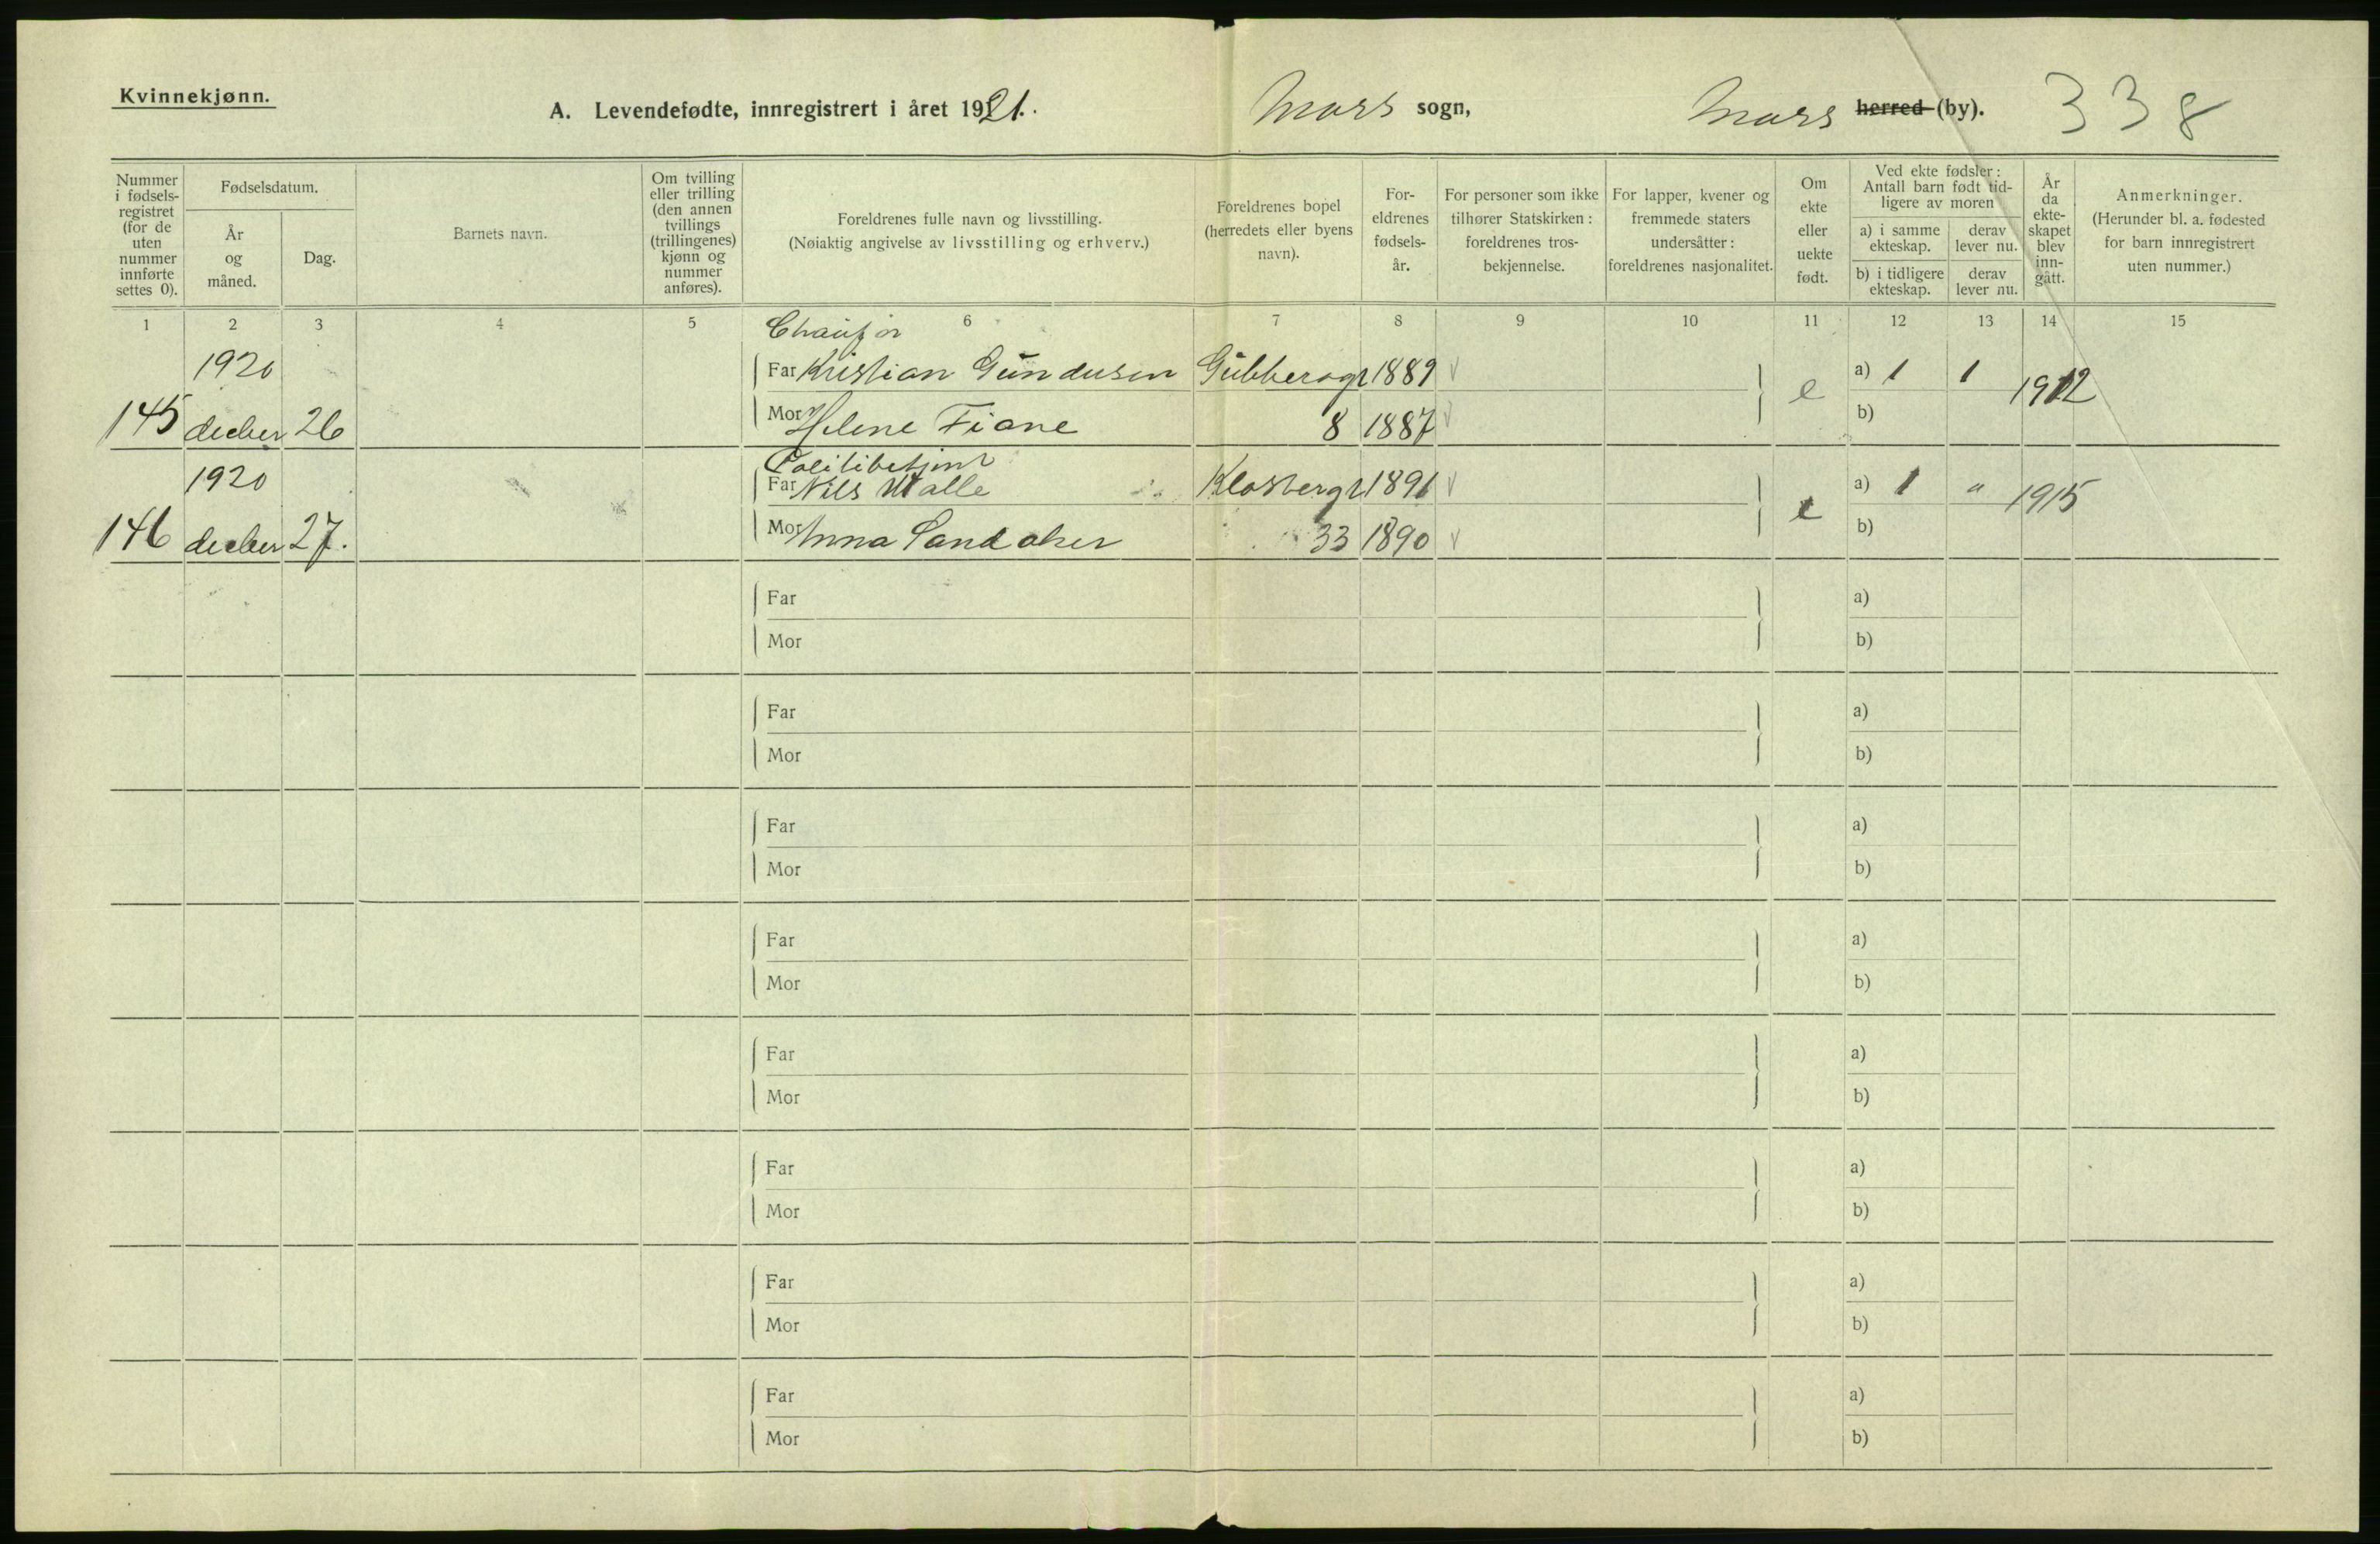 Kvinnekjønn.
A. Levendefødte, innregistrert i året 1921.
Moss sogn,
Moss herred (by).
338
Nummer i fødsels-registret (for de uten nummer innførte settes 0).
Fødselsdatum.
År og måned.
Dag.
Barnets navn.
Om tvilling eller trilling (den annen tvillings (trillingenes) kjønn og nummer anføres).
Foreldrenes fulle navn og livsstilling.
(Nøiaktig angivelse av livsstilling og erhverv.)
Foreldrenes bopel (herredets eller byens navn).
For-eldrenes fødsels-år.
For personer som ikke tilhører Statskirken: foreldrenes tros-bekjennelse.
For lapper, kvener og fremmede staters undersåtter: foreldrenes nasjonalitet.
Om ekte eller uekte født.
Ved ekte fødsler: Antall barn født tid-ligere av moren
a) i samme ekteskap.
derav lever nu.
b) i tidligere ekteskap.
derav lever nu.
År da ekte-skapet blev inn-gått.
Anmerkninger.
(Herunder bl. a. fødested for barn innregistrert uten nummer.)
1 2 3 4 5 6 7 8 9 10 11 12 13 14 15
Chaufør
1920 Far Kristian Gundersen Gubbersgt 1889 a) 1 1
145 decber 26 Mor Helene Fiane 8 1887 e b) 1912
Politibetjent
1920 Far Nils Walle Klosbergt 1891 a) 1 " 1915
146 decber 27. Mor Anna Sandaker 33 1890 e b)
Far a)
Mor b)
Far a)
Mor b)
Far a)
Mor b)
Far a)
Mor b)
Far a)
Mor b)
Far a)
Mor b)
Far a)
Mor b)
Far a)
Mor b)